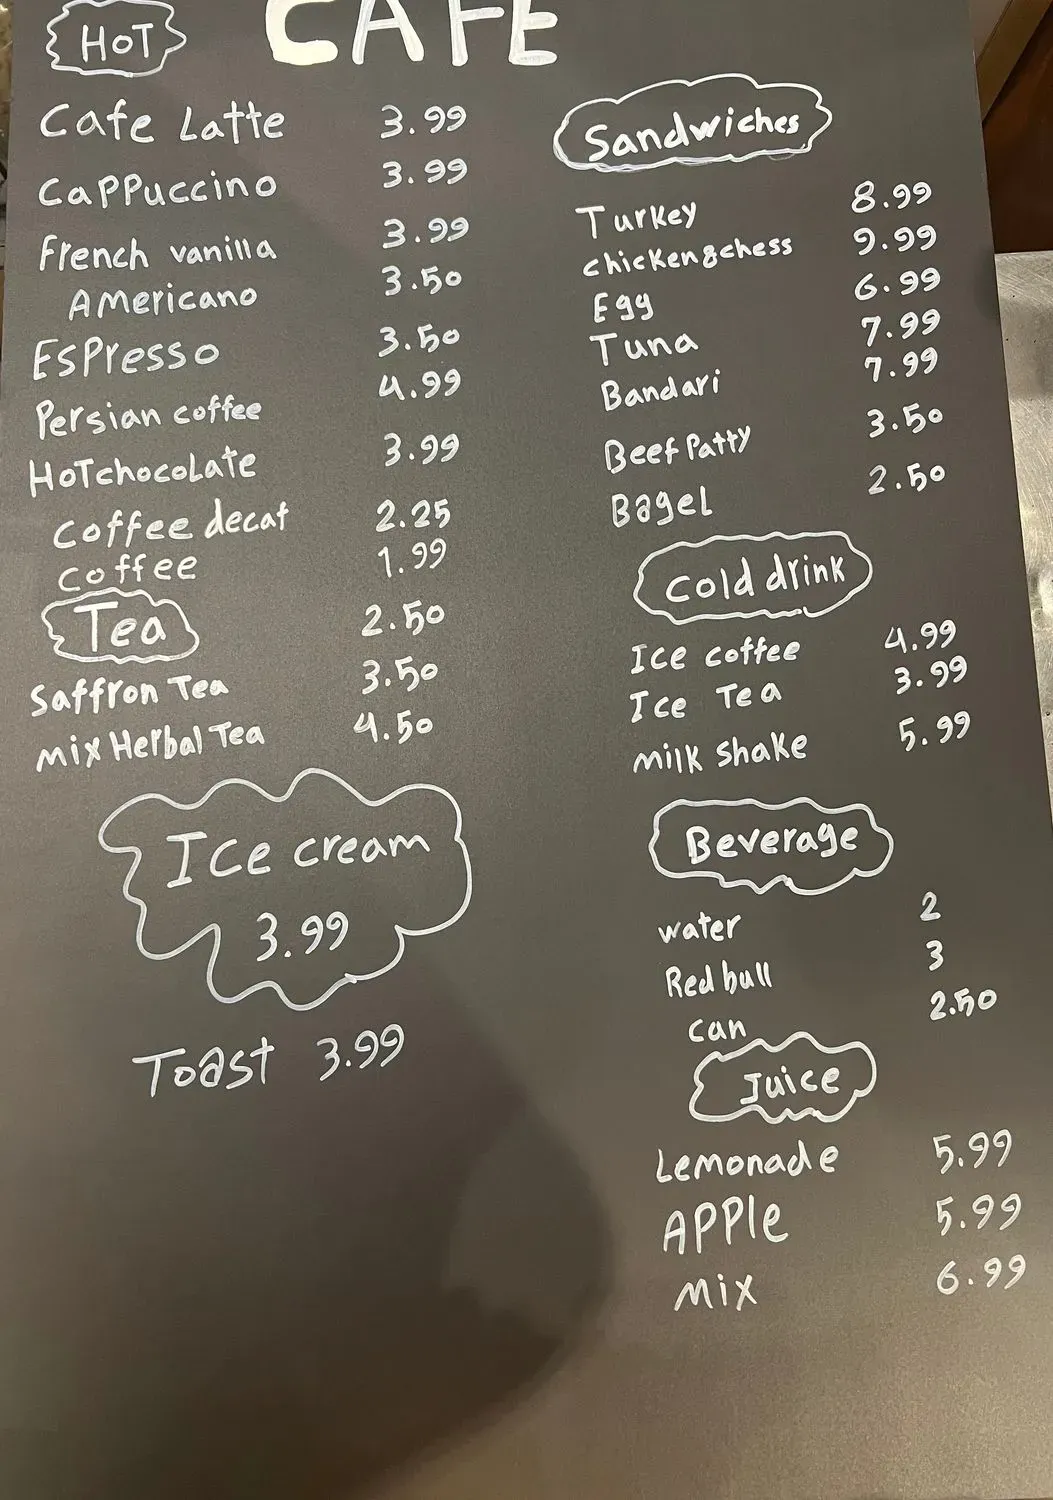 CAFE
HOT
Cafe Latte 3.99
CaPPuccino 3.99
French vanilla 3.99
AMericano 3.50
EsPresso 3.50
Persian coffee 4.99
HoTchocoLate 3.99
coffee decaf 2.25
coffee 1.99
Tea 2.50
Saffron Tea 3.50
mix Herbal Tea 4.50
Ice cream
3.99
Toast 3.99
Sandwiches
Turkey 8.99
chicken&chess 9.99
Egg 6.99
Tuna 7.99
Bandari 7.99
Beef Patty 3.50
Bagel 2.50
cold drink
Ice coffee 4.99
Ice Tea 3.99
milk shake 5.99
Beverage
water 2
Red bull 3
can 2.50
Juice
Lemonade 5.99
APPle 5.99
mix 6.99